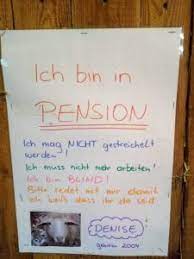 Ich bin in
PENSION
Ich mag NICHT gestreichelt
werden!
Ich muss nicht mehr arbeiten!
Ich bin BLIND!
Bitte redet mit mir damit
ich weiß dass ihr da seid
DENISE
geboren 2004